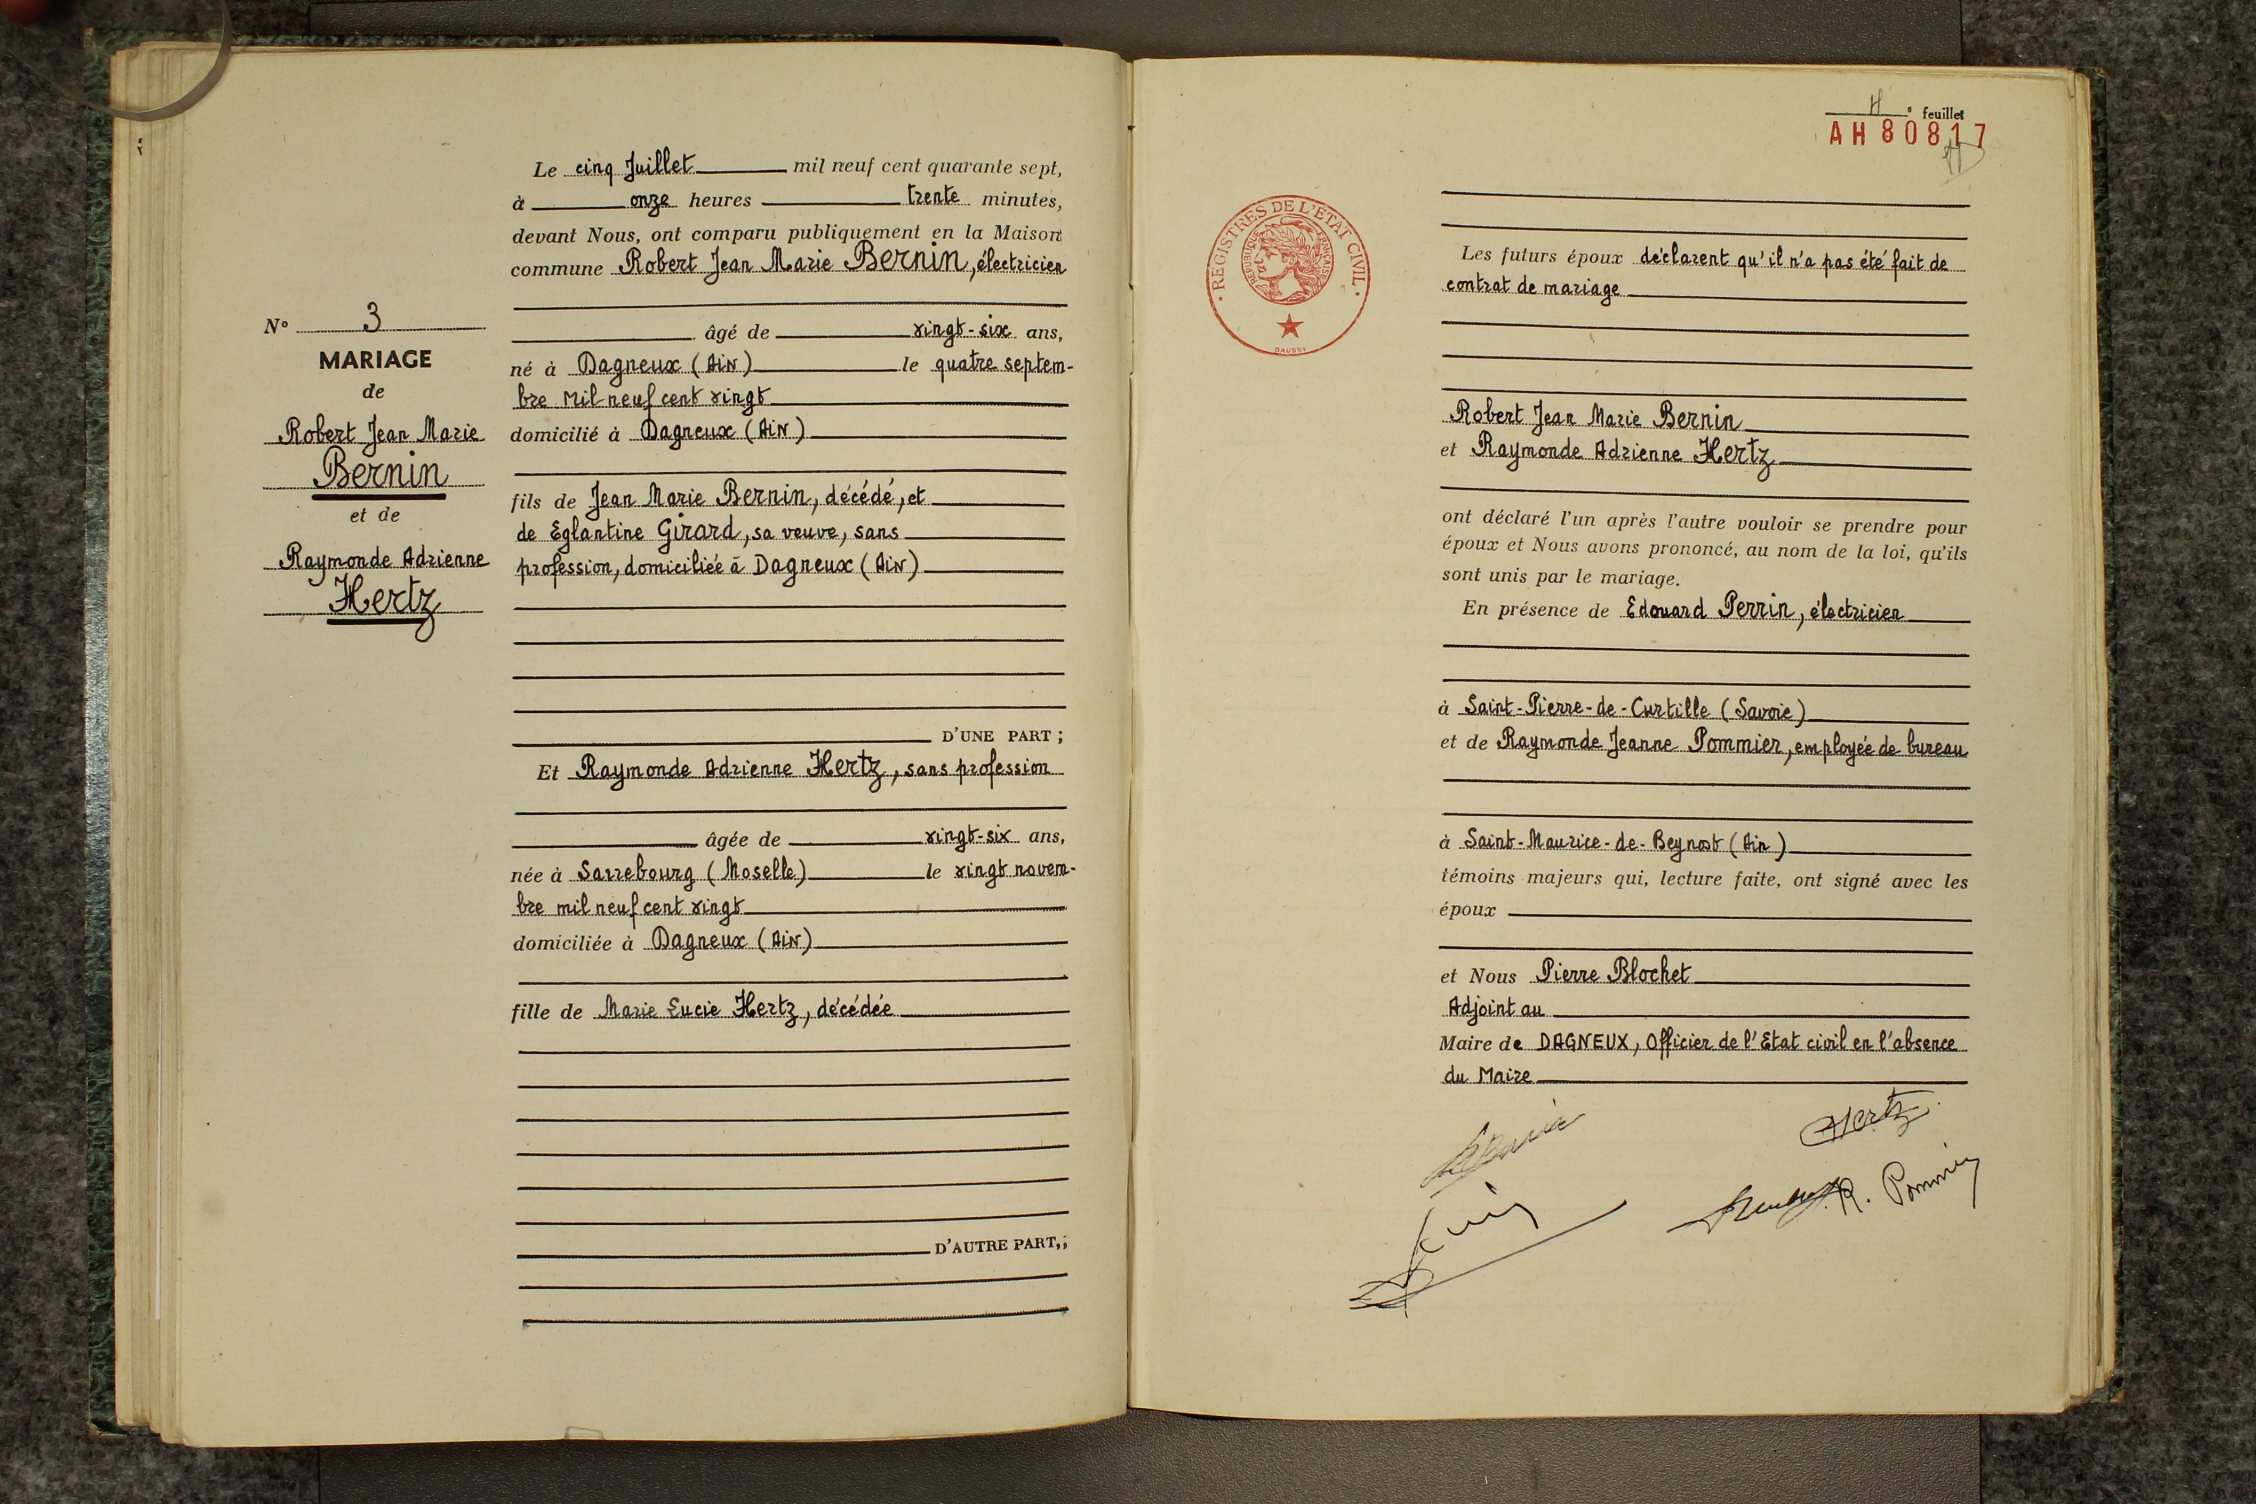 Le cinq Juillet mil neuf cent quarante sept,
à onze heures trente minutes,
devant Nous, ont comparu publiquement en la Maison
commune Robert Jean Marie Bernin, électricien
âgé de vingt-six ans,
né à Dagneux (Ain) le quatre septem-
bre mil neuf cent vingt
domicilié à Dagneux (Ain)
fils de Jean Marie Bernin, décédé, et
de Eglantine Girard, sa veuve, sans
profession, domiciliée à Dagneux (Ain)
D'UNE PART ;
Et Raymonde Adrienne Hertz, sans profession
âgée de vingt-six ans,
née à Sarrebourg (Moselle) le vingt novem-
bre mil neuf cent vingt
domiciliée à Dagneux (Ain)
fille de Marie Lucie Hertz, décédée
D'AUTRE PART,;
N° 3
MARIAGE
de
Robert Jean Marie
Bernin
et de
Raymonde Adrienne
Hertz
° feuillet
AH 80817
REGISTRES DE L'ETAT CIVIL
REPUBLIQUE FRANÇAISE
DAUSSY
Les futurs époux déclarent qu'il n'a pas été fait de
contrat de mariage
Robert Jean Marie Bernin
et Raymonde Adrienne Hertz
ont déclaré l'un après l'autre vouloir se prendre pour
époux et Nous avons prononcé, au nom de la loi, qu'ils
sont unis par le mariage.
En présence de Edouard Perrin, électricien
à Saint-Pierre-de-Curtille (Savoie)
et de Raymonde Jeanne Pommier, employée de bureau
à Saint-Maurice-de-Beynost (Ain)
témoins majeurs qui, lecture faite, ont signé avec les
époux
et Nous Pierre Blochet
Adjoint au
Maire de DAGNEUX, Officier de l'Etat civil en l'absence
du Maire
Hertz
R. Pommier